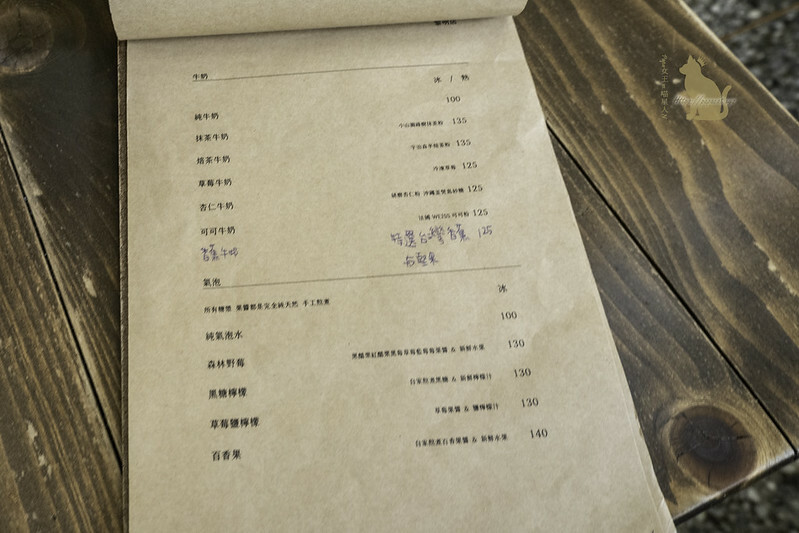 牛奶 冰 / 熱
純牛奶 100
抹茶牛奶 小山園 抹茶粉 135
焙茶牛奶 135
草莓牛奶 冷凍草莓 125
杏仁牛奶 杏仁粉 沖繩 糖 125
可可牛奶 法國 WEISS 可可粉 125
香蕉牛奶 特選台灣香蕉 125
氣泡 冰
所有糖漿 果醬都是完全純天然 手工熬煮
純氣泡水 100
森林野莓 黑醋栗紅醋栗黑莓草莓藍莓莓果醬 & 新鮮水果 130
黑糖檸檬 自家熬煮黑糖 & 新鮮檸檬汁 130
草莓鹽檸檬 草莓果醬 & 鹽檸檬汁 130
百香果 自家熬煮百香果醬 & 新鮮水果 140